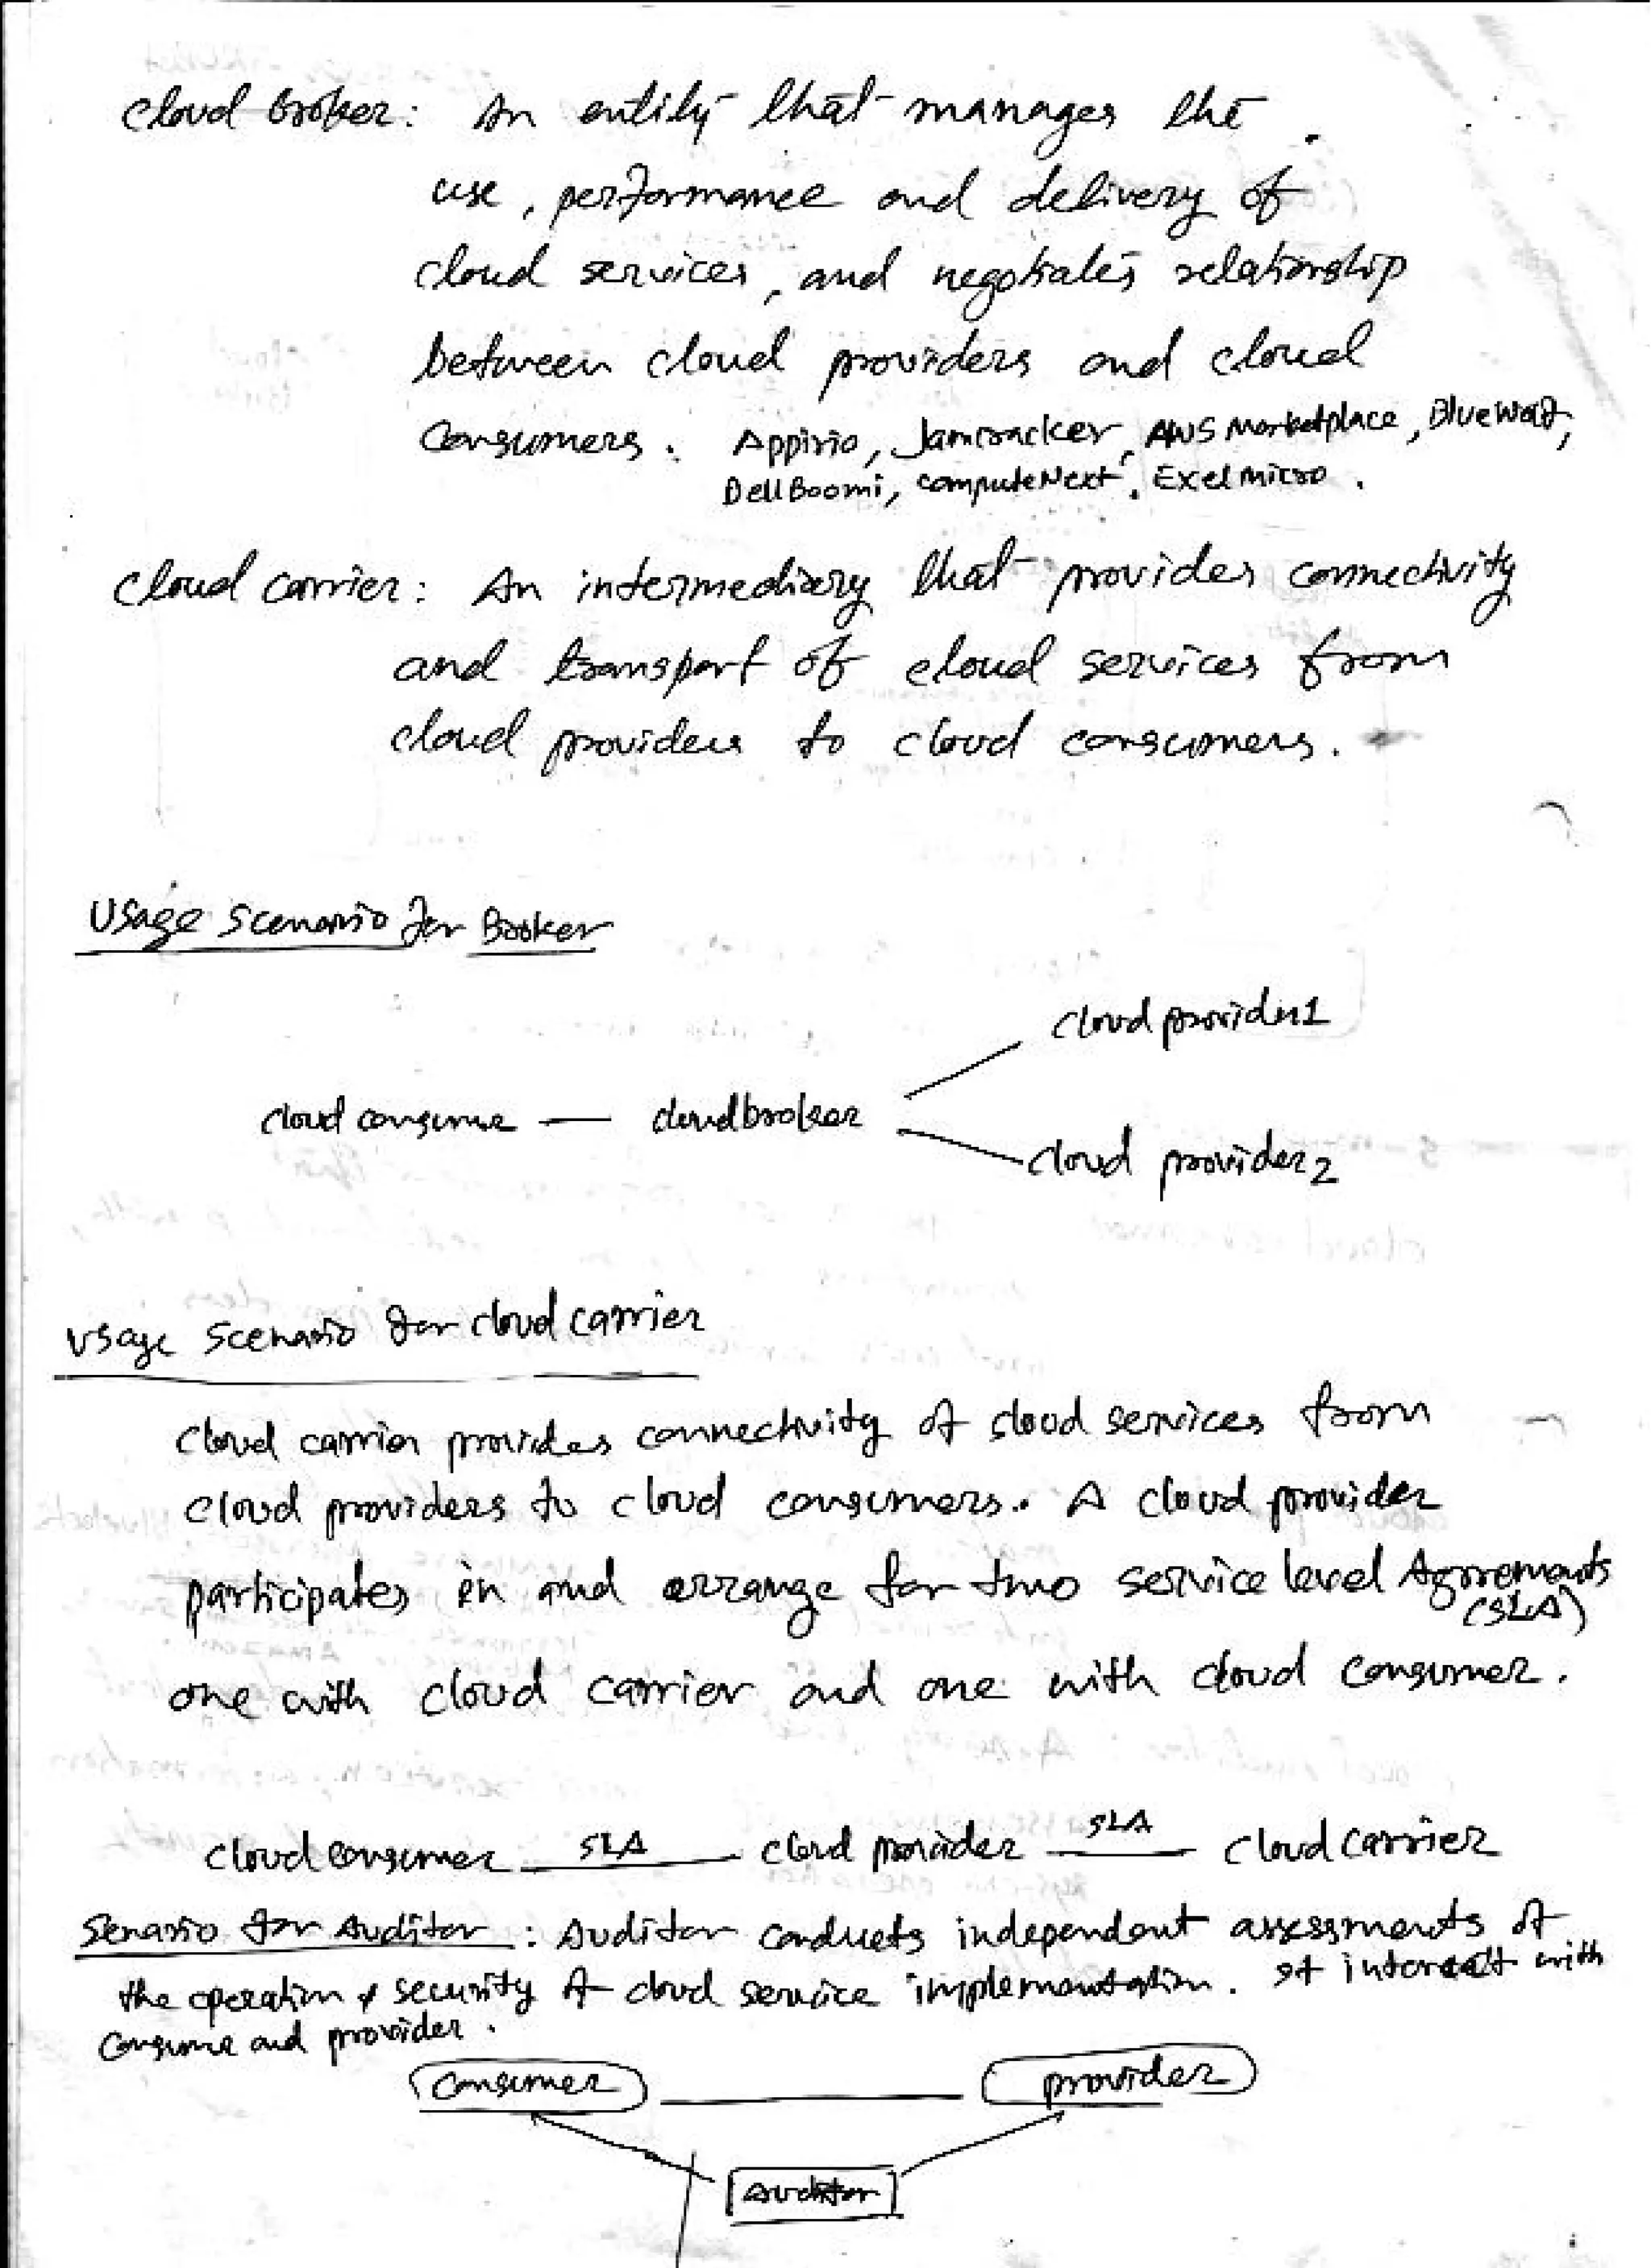 Cloud broker: An entity that manages the
use, performance and delivery of
cloud services, and negotiates relationship
between cloud providers and cloud
consumers. Appirio, Jamcracker, AWS Marketplace, BlueWolf,
Dell Boomi, computeNext, Exel micro.
Cloud carrier: An intermediary that provides connectivity
and transport of cloud services from
cloud providers to cloud consumers.
Usage Scenario for Broker
cloud provider1
cloud consumer — cloud broker
cloud provider2
Usage Scenario for cloud carrier
cloud carrier provides connectivity of cloud services from
cloud providers to cloud consumers. A cloud provider
participates in and arrange for two service level Agreements
(SLA)
one with cloud carrier and one with cloud consumer.
cloud consumer — SLA — cloud provider — SLA — cloud carrier
Senario for Auditor: Auditor conducts independent assessments of
the operation & security of cloud service implementation. It interact with
consume and provider.
consumer — provider
Auditor